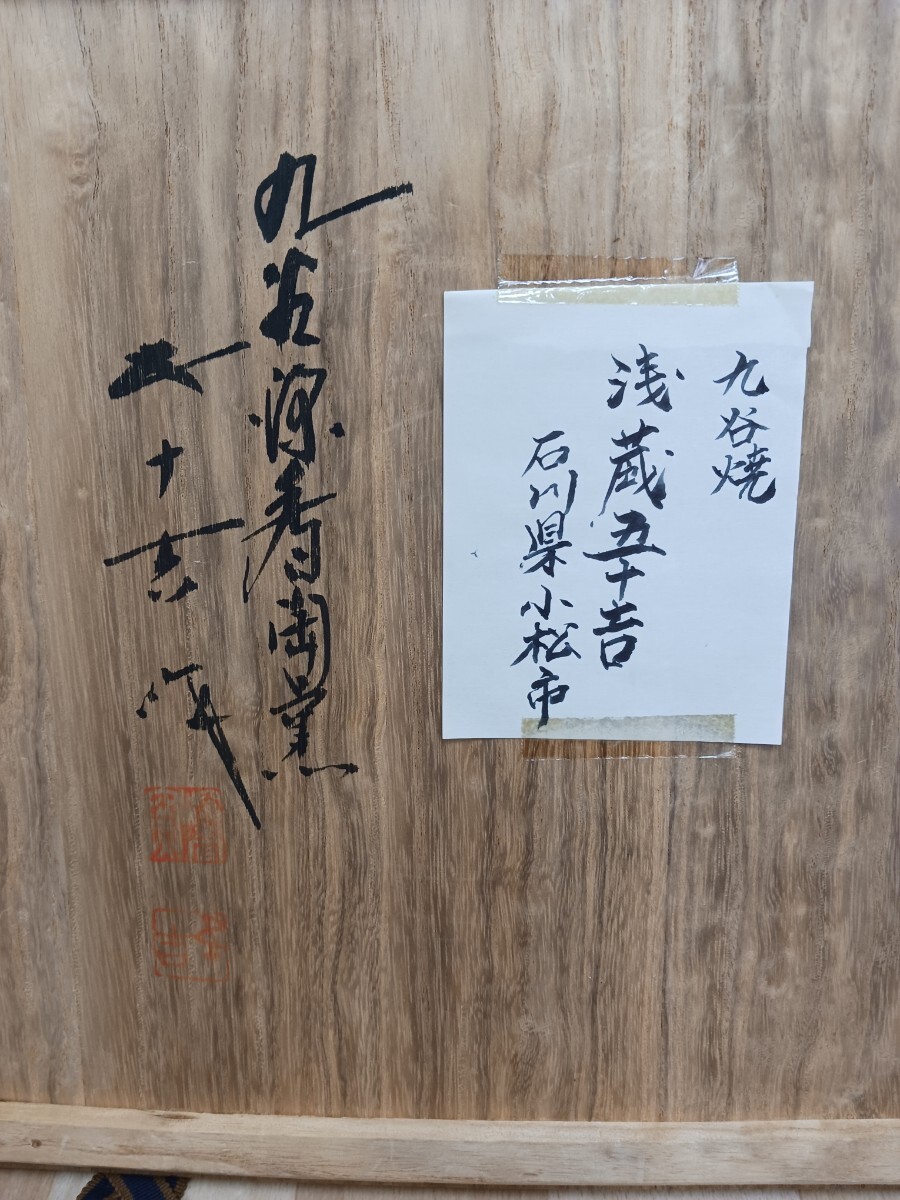 九谷焼
浅蔵五十吉
石川県小松市
九谷深香陶窯
五十吉作